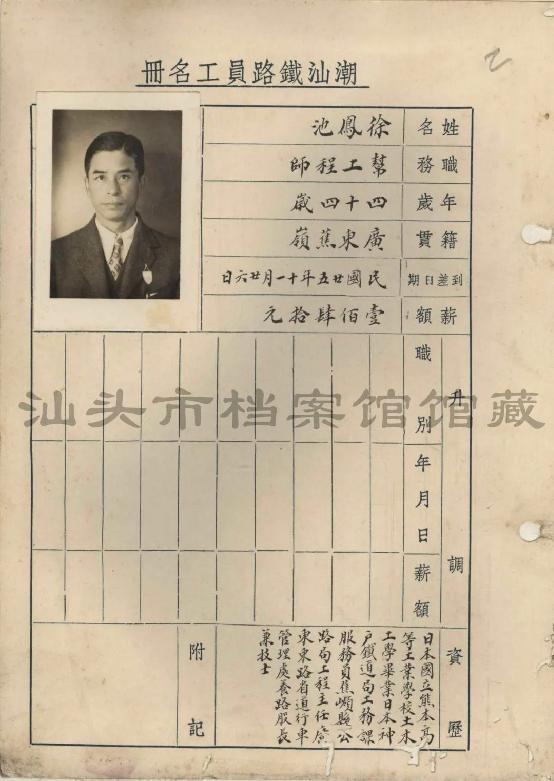 潮汕鐵路員工名冊
姓名 徐鳳池
職務 幫工程師
年歲 四十四歲
籍貫 廣東蕉嶺
到差日期 民國廿五年十一月廿六日
薪額 壹佰肆拾元
升調
職別
年月日
薪額
資歷
日本國立熊本高
等工業學校土木
工學畢業日本神
戶鐵道局工務課
服務員蕉嶺縣公
路局工程主任廣
東東路省道行車
管理處養路股長
兼技士
附記
汕头市档案馆馆藏